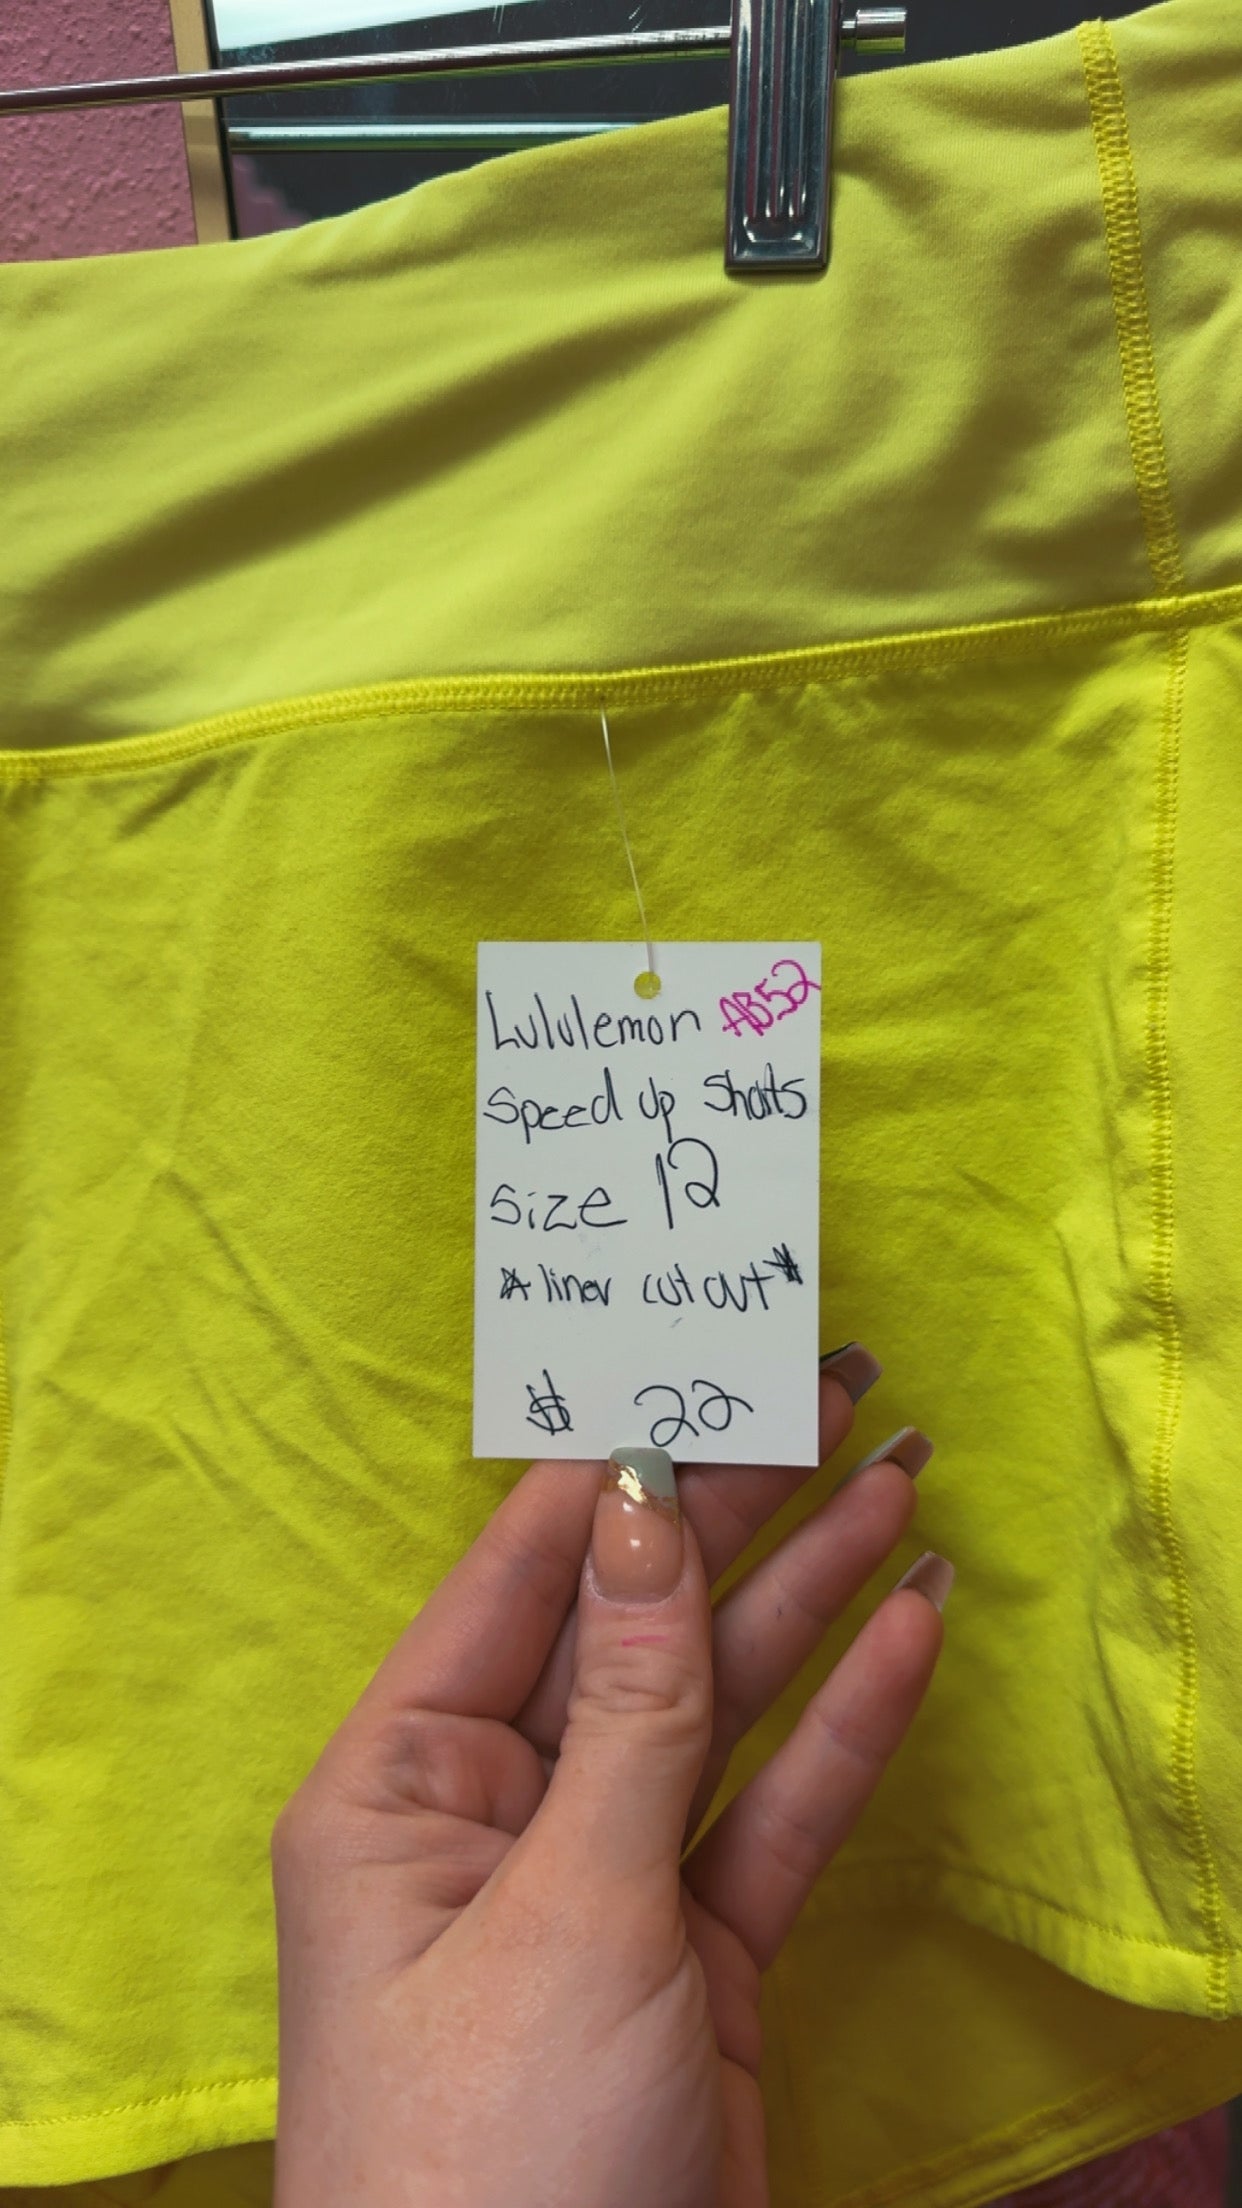 Lululemon AB52
Speed up Shorts
Size 12
☆ liner cut out ☆
$ 22